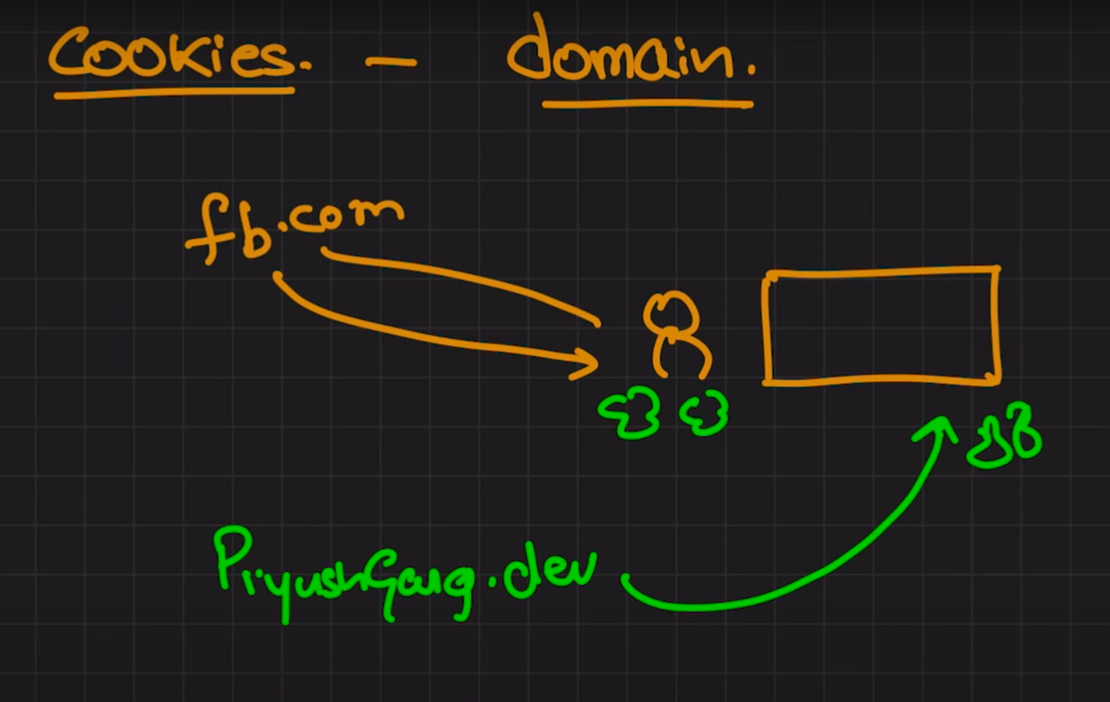 Cookies. - domain.
fb.com
PiyushGarg.dev